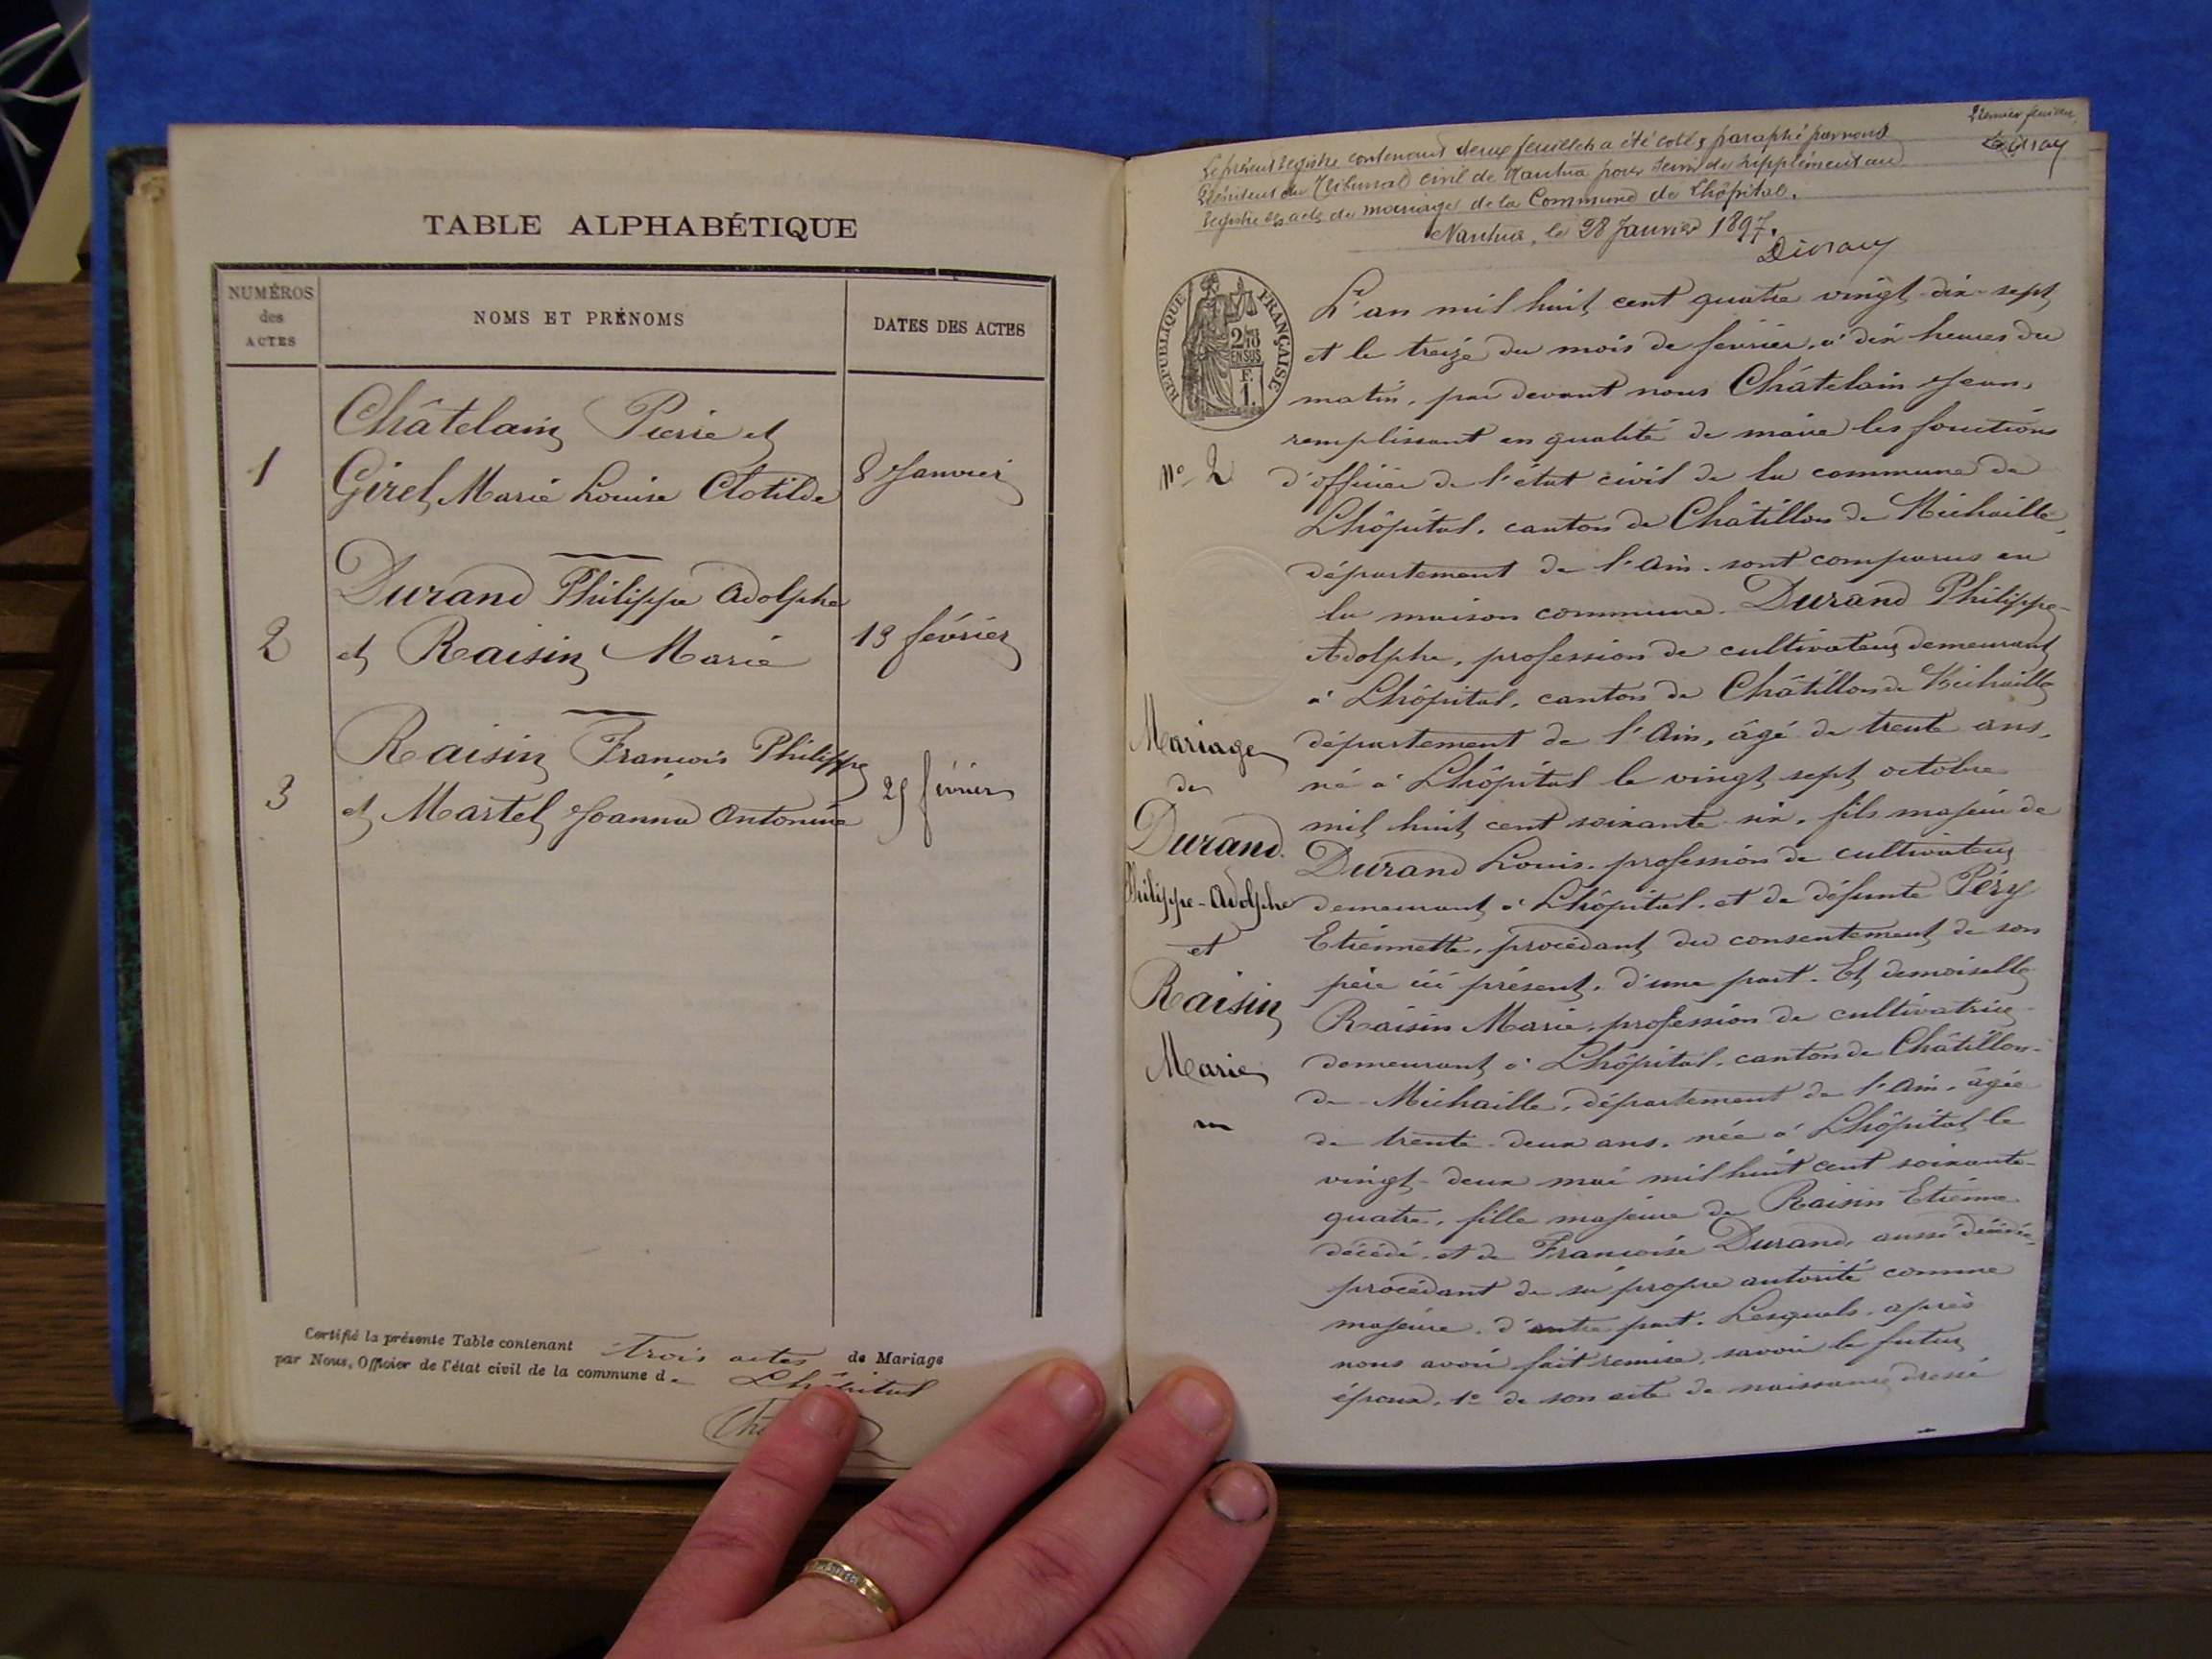 TABLE ALPHABÉTIQUE
NUMÉROS
des
ACTES
NOMS ET PRÉNOMS
DATES DES ACTES
Châtelain Pierre et
1
Girel Marie Louise Clotilde
8 Janvier
Durand Philippe Adolphe
2
et Raisin Marie
13 février
Raisin François Philippe
3
et Martel Joanna Antonine
25 février
Certifié la présente Table contenant trois actes de Mariage
par Nous, Officier de l'état civil de la commune de Lhôpital
Premier feuillet
Le présent registre contenant deux feuillets a été coté & paraphé par nous
Président du Tribunal civil de Nantua pour servir de supplément au
registre des actes de mariage de la Commune de Lhôpital.
Nantua, le 28 Janvier 1897.
RÉPUBLIQUE FRANÇAISE
2/10
EN SUS
F.
1.
L'an mil huit cent quatre vingt-dix-sept
et le treize du mois de février, à dix heures du
matin, par devant nous Châtelain Jean,
remplissant en qualité de maire les fonctions
n° 2
d'officier de l'état civil de la commune de
Lhôpital, canton de Châtillon de Michaille,
département de l'Ain, sont comparus en
la maison commune. Durand Philippe-
Adolphe, profession de cultivateur demeurant
à Lhôpital, canton de Châtillon de Michaille
département de l'Ain, âgé de trente ans,
né à Lhôpital le vingt sept octobre
mil huit cent soixante-six, fils majeur de
Durand Louis, profession de cultivateur
demeurant à Lhôpital, et de défunte Péry
Etiennette, procédant du consentement de son
père ici présent, d'une part. Et demoiselle
Raisin Marie, profession de cultivatrice
demeurant à Lhôpital, canton de Châtillon-
de-Michaille, département de l'Ain, âgée
de trente-deux ans, née à Lhôpital le
vingt-deux mai mil huit cent soixante-
quatre, fille majeure de Raisin Etienne
décédé, et de Françoise Durand, aussi décédée
procédant de sa propre autorité comme
majeure, d'autre part. Lesquels, après
nous avoir fait remise, savoir le futur
époux, 1° de son acte de naissance dressé
Mariage
de
Durand
Philippe-Adolphe
et
Raisin
Marie